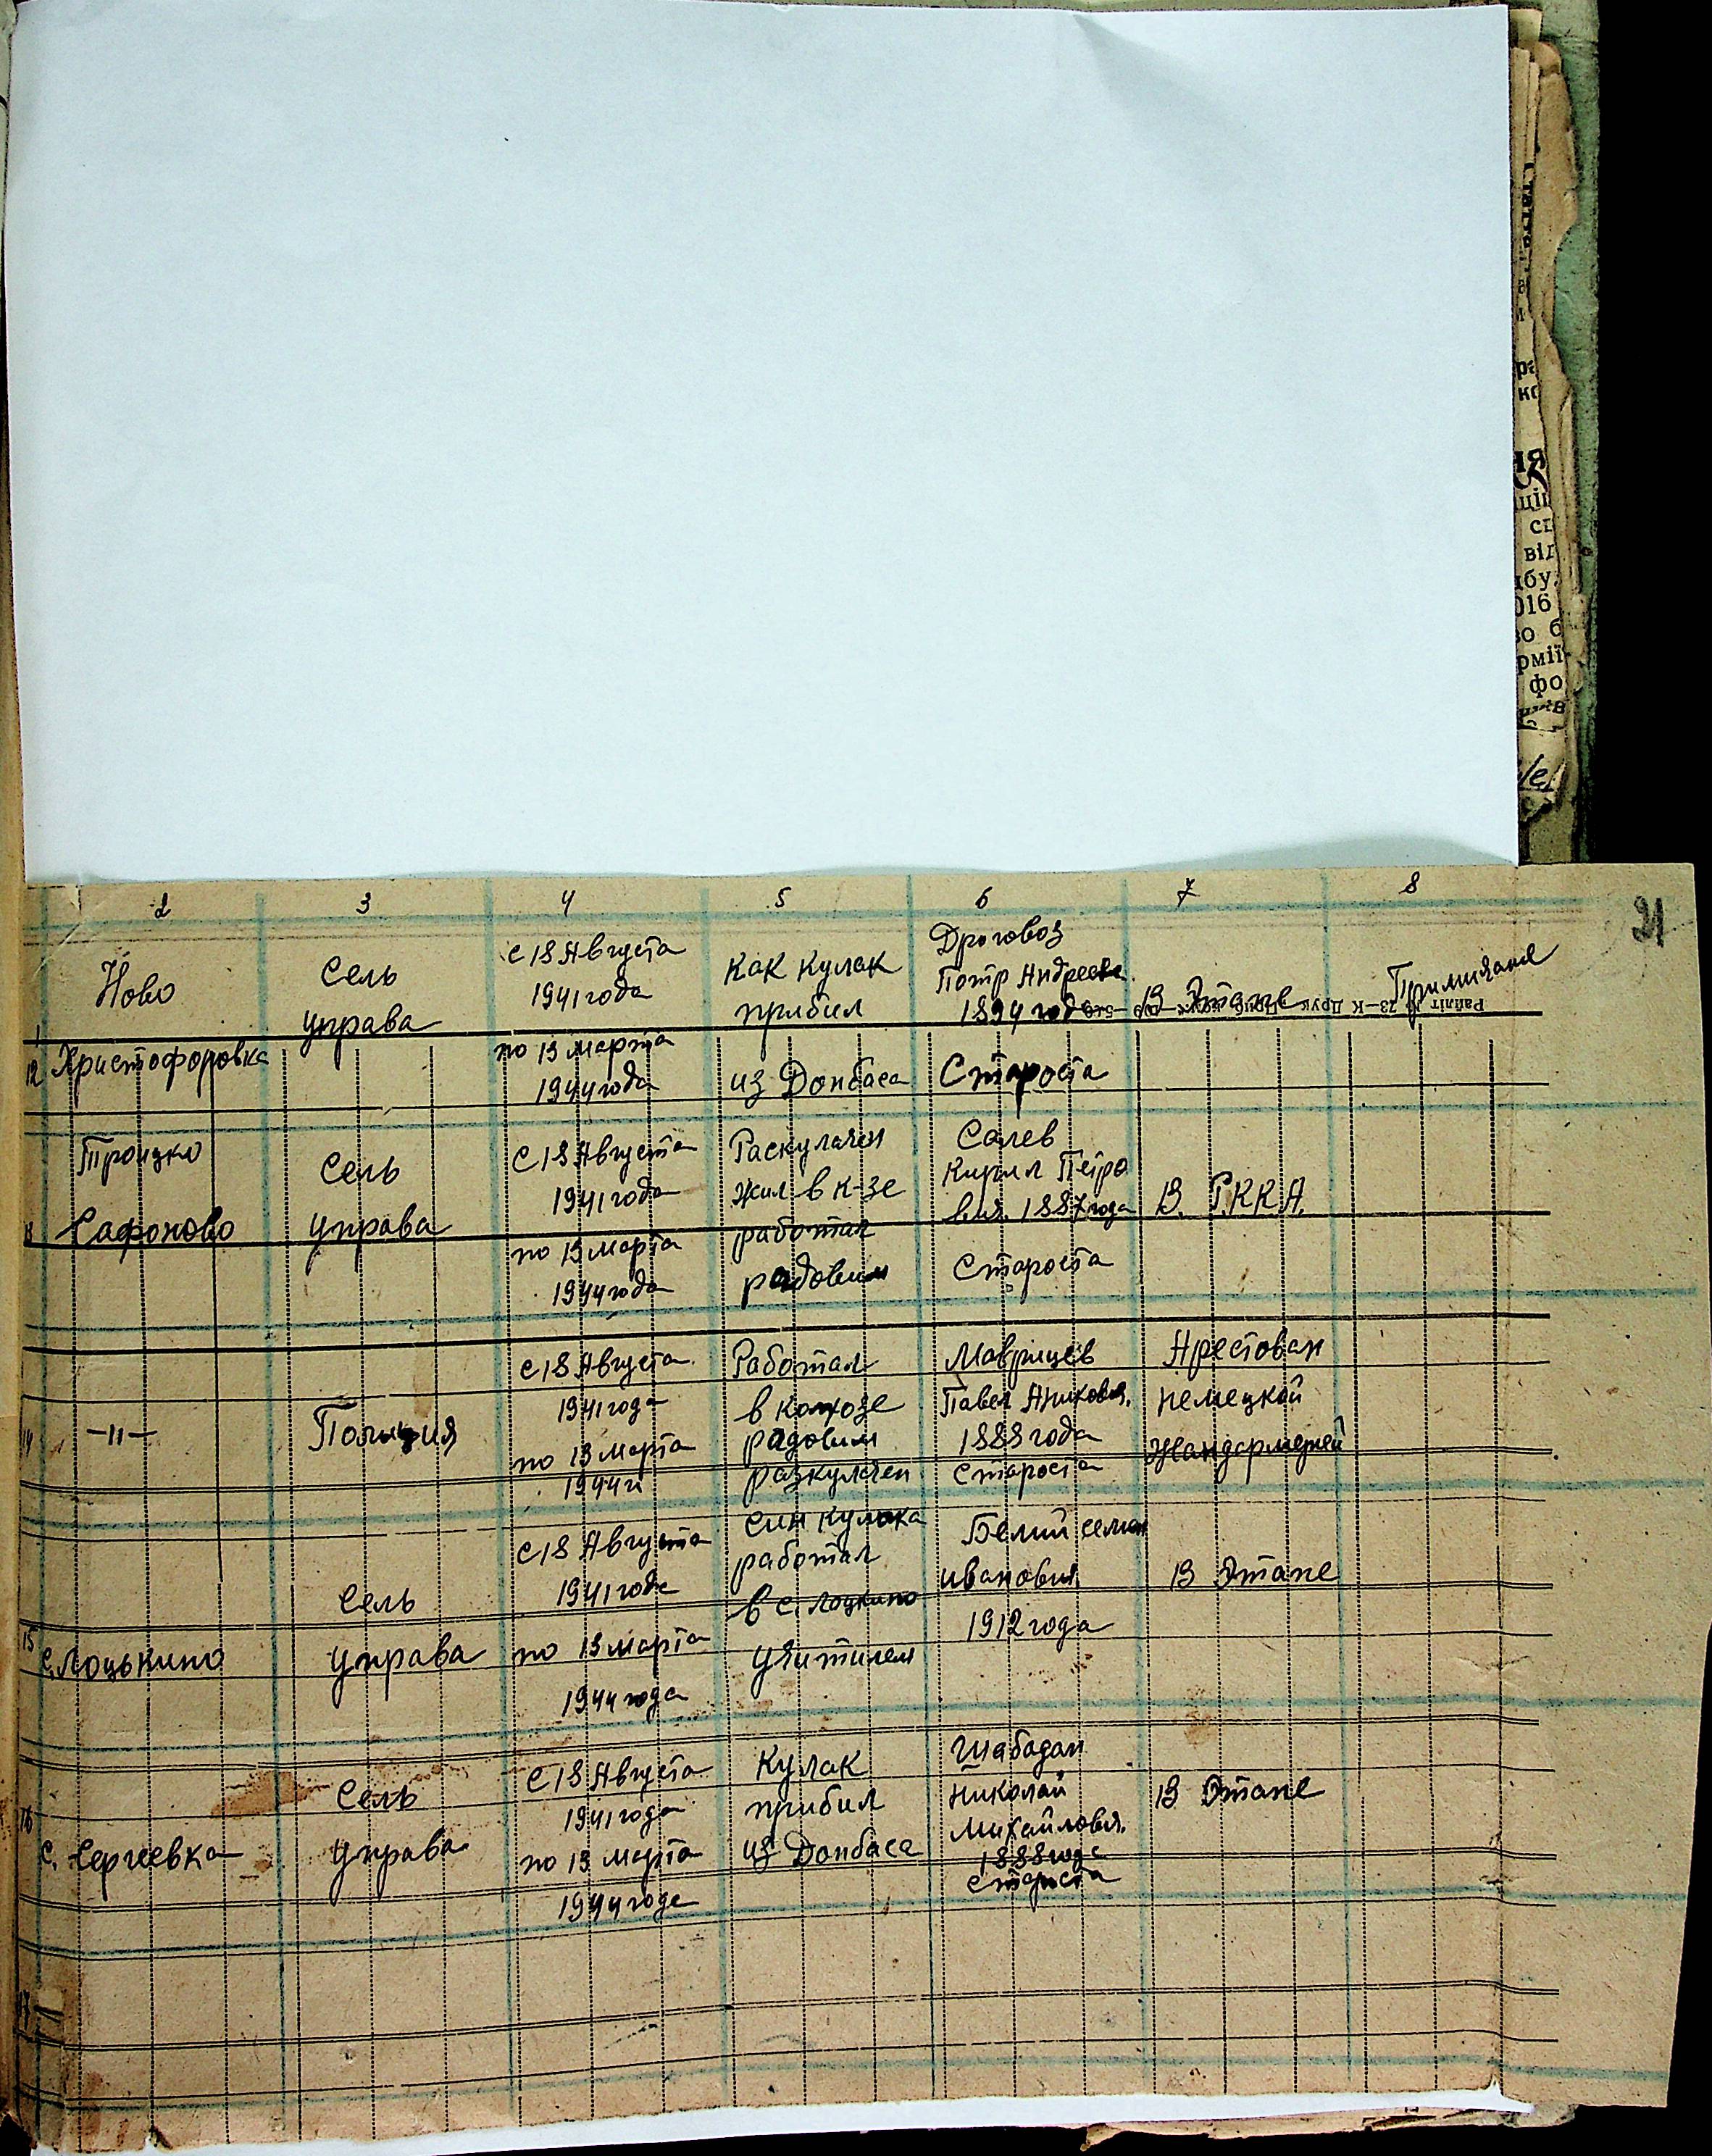 2 3 4 5 6 7 8
21
Ново Сель с 18 Августа Как кулак Дроговоз
управа 1941 года прибил Потр Андреевич В Этапе Примичание
1894 года
12 Христофоровка по 13 марта из Донбаса Староста
1944 года
Троицко Сель С 18 Августа Раскулачен Салев
1941 года жил в к-зе Кирил Петро В. Р.К.К.А.
13 Сафоново управа работал вич. 1887 года
по 13 марта радовим Староста
1944 года
с 18 Августа Работал Маврицев Арестован
1941 года в колхозе Павел немецкой
14 —"— Полиция по 13 марта радовим 1888 года жандармерией
1944 г разкулачен Староста
С 18 Августа син кулака Белий семен
1941 года работал иванович В Этапе
Сель в с. лоцкино 1912 года
15 с. Лоцькино управа по 13 марта учитилем
1944 года
С 18 Августа Кулак Шабадан
Сель 1941 года прибил николай В Этапе
16 с. Сергеевка управа по 13 марта из Донбаса михайлович.
1944 года 1888 года
староста
17
Райліт 73—К Друк